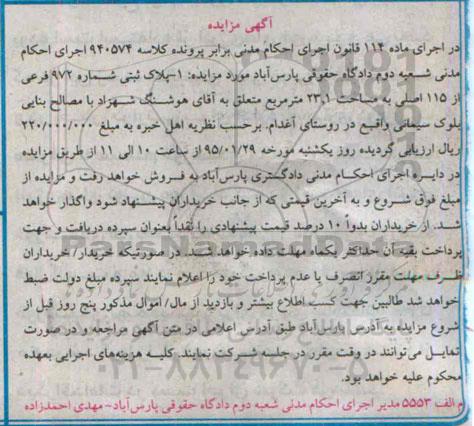 آگهی مزایده
در اجرای ماده ۱۱۴ قانون اجرای احکام مدنی برابر پرونده کلاسه ۹۴۰۵۷۴ اجرای احکام
مدنی شعبه دوم دادگاه حقوقی پارس‌آباد مورد مزایده: ۱-پلاک ثبتی شماره ۹۷۲ فرعی
از ۱۱۵ اصلی به مساحت ۲۳,۱ مترمربع متعلق به آقای هوشنگ شهزاد با مصالح بنایی
بلوک سیمانی واقع در روستای آغدام. برحسب نظریه اهل خبره به مبلغ ۲۲۰/۰۰۰/۰۰۰
ریال ارزیابی گردیده روز یکشنبه مورخه ۹۵/۰۱/۲۹ از ساعت ۱۰ الی ۱۱ از طریق مزایده
در دایره اجرای احکام مدنی دادگستری پارس‌آباد به فروش خواهد رفت و مزایده از
مبلغ فوق شروع و به آخرین قیمتی که از جانب خریداران پیشنهاد شود واگذار خواهد
شد. از خریداران بدواً ۱۰ درصد قیمت پیشنهادی را نقداً بعنوان سپرده دریافت و جهت
پرداخت بقیه آن حداکثر یکماه مهلت داده خواهد شد. در صورتیکه خریدار/ خریداران
ظرف مهلت مقرر انصرف یا عدم پرداخت خود را اعلام نمایند سپرده مبلغ دولت ضبط
خواهد شد طالبین جهت کسب اطلاع بیشتر و بازدید از مال/ اموال مذکور پنج روز قبل از
شروع مزایده به آدرس پارس‌آباد طبق آدرس اعلامی در متن آگهی مراجعه و در صورت
تمایل می‌توانند در وقت مقرر در جلسه شرکت نمایند. کلیه هزینه‌های اجرایی بعهده
محکوم علیه خواهد بود.
م الف ۵۵۵۳ مدیر اجرای احکام مدنی شعبه دوم دادگاه حقوقی پارس‌آباد- مهدی احمدزاده
ParsNamadData
۰۲۱-۸۸۳۴۹۶۷۰-۵